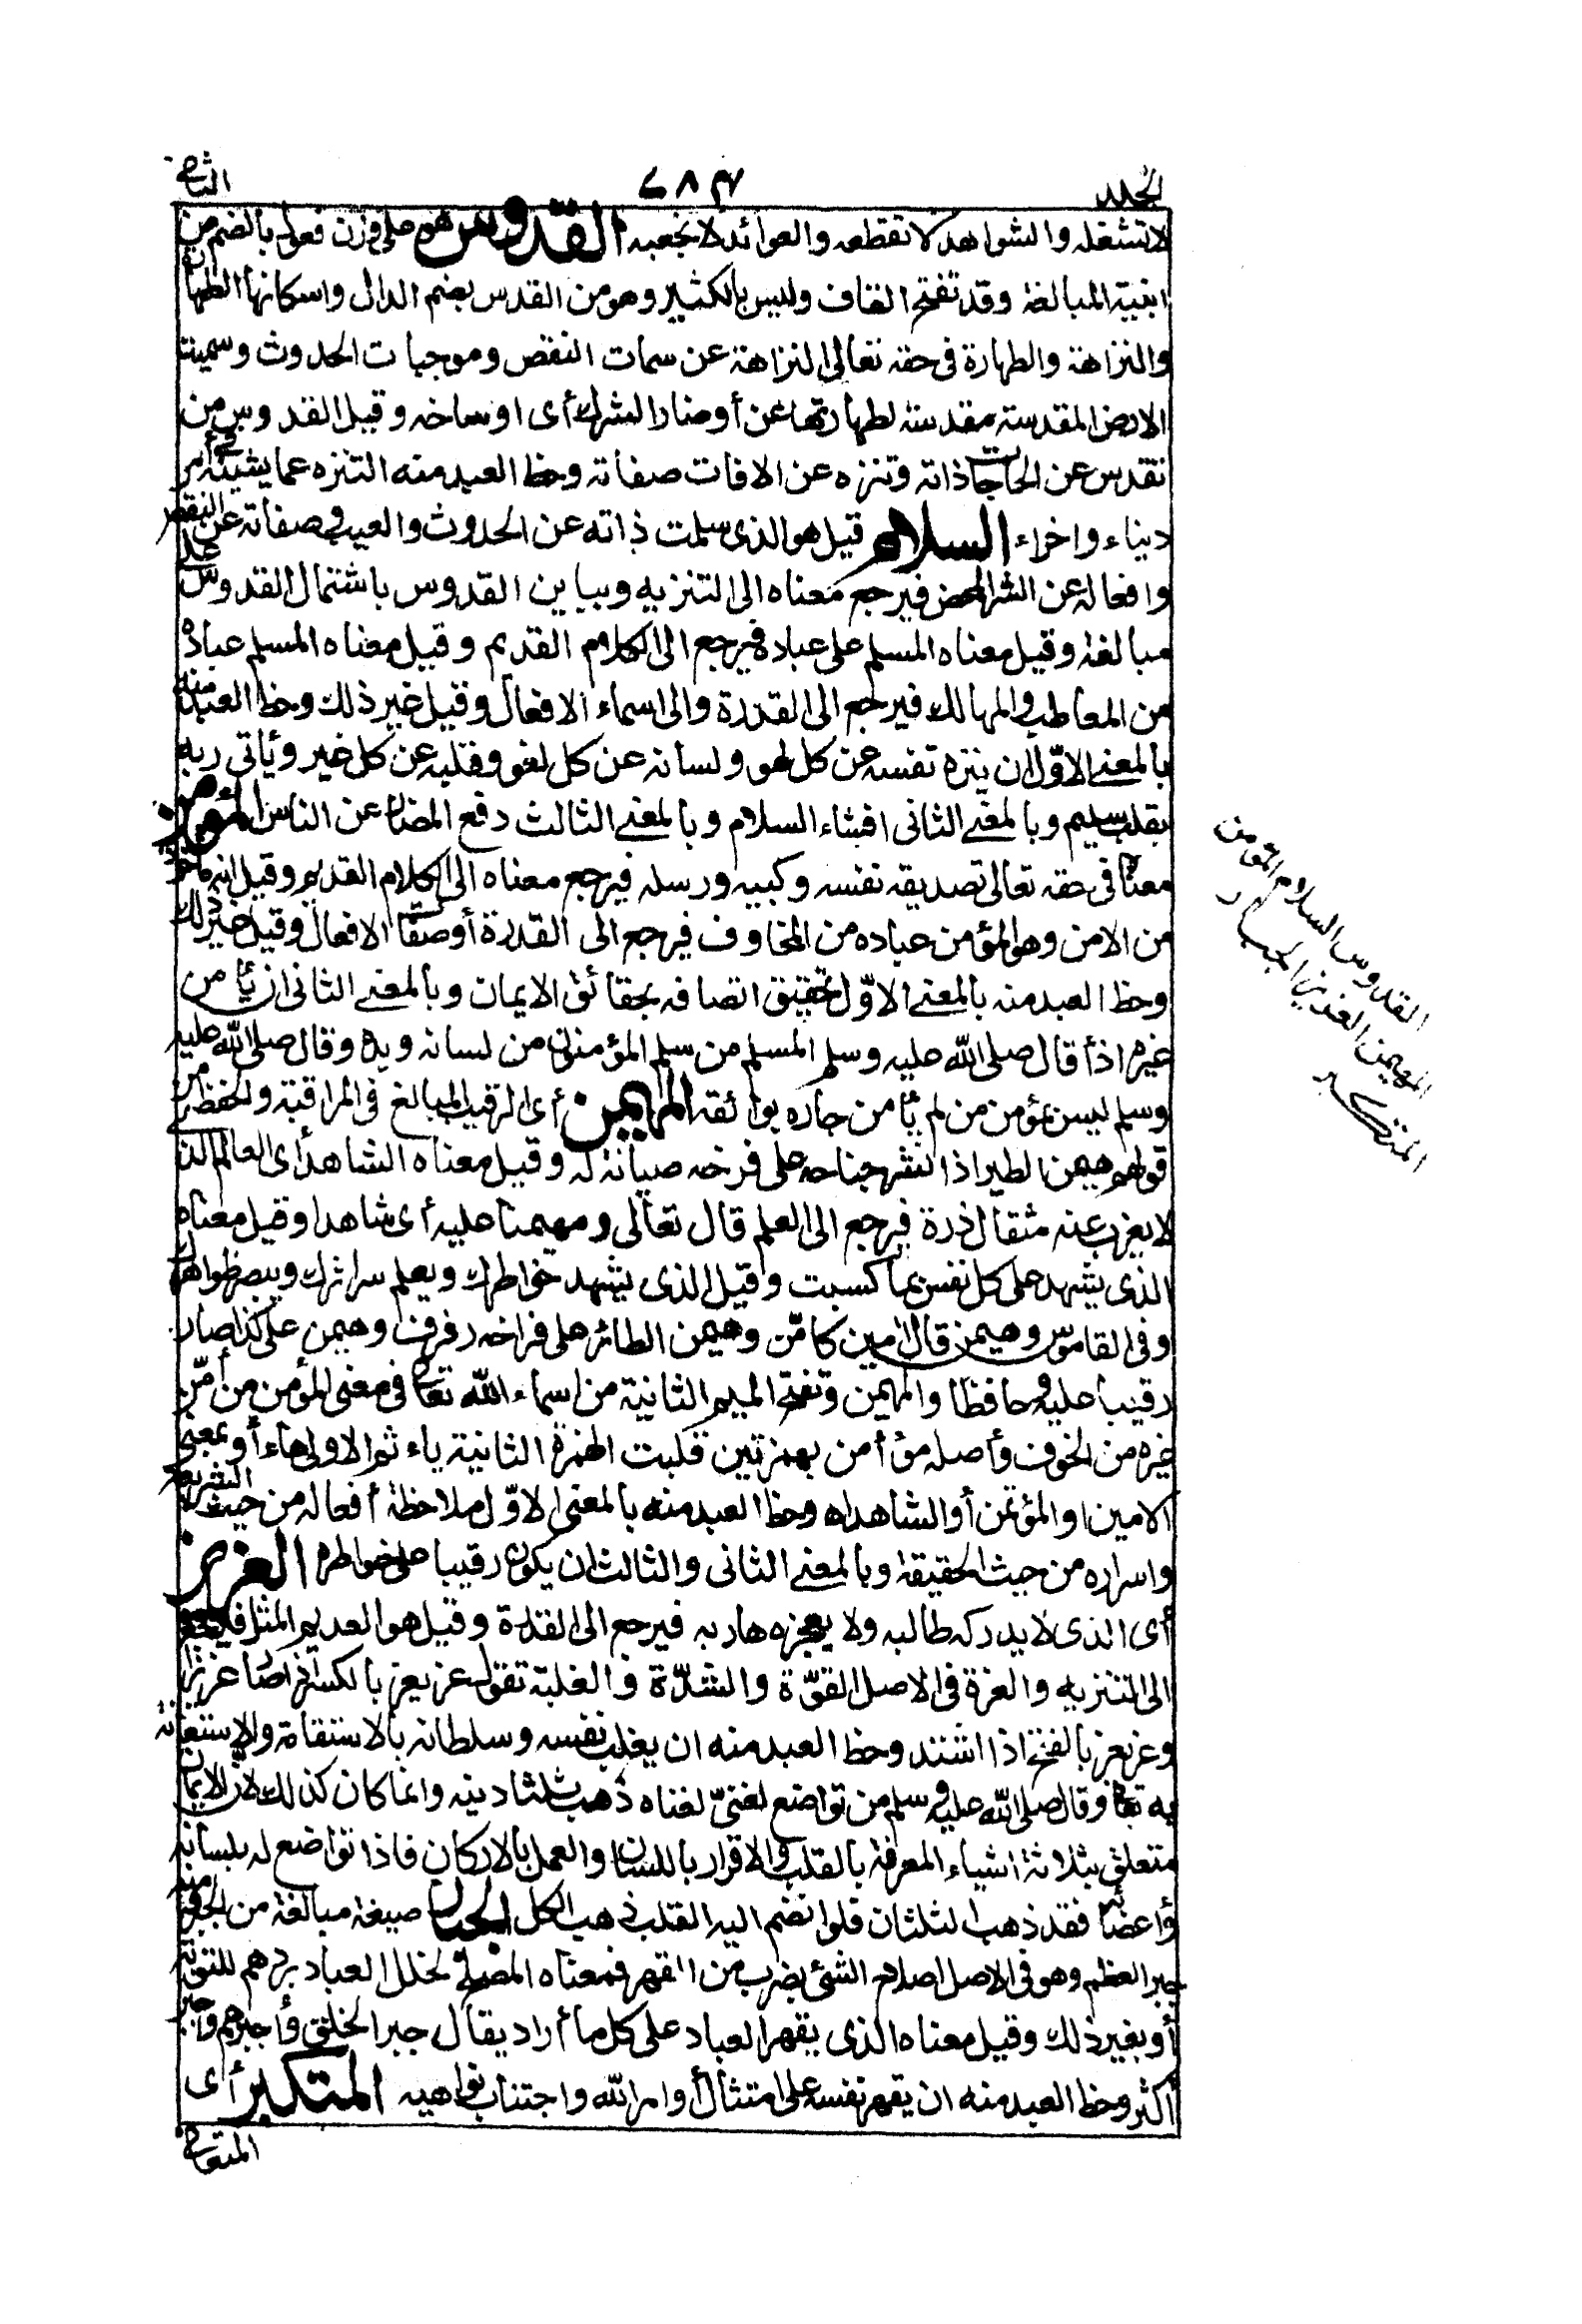 الجلد ٢٨٣ الثانى
لا تشغله والشواهد لا تقطعه والعوائد لا تحجبه القدوس هو على وزن فعول بالضم من
ابنية المبالغة وقد تفتح القاف وليس بالكثير وهو من القدس بضم الدال واسكانها الطهارة
والنزاهة والطهارة فى حقه تعالى النزاهة عن سمات النقص وموجبات الحدوث وسميت
الارض المقدسة مقدسة لطهارتها عن أوضار الشرك أى اوساخه وقيل القدوس من
تقدس عن الحاجات ذاته وتنزه عن الافات صفاته وحظ العبد منه التنزه عما يشينه فى أمر
ديناه واخراه السلام قيل هو الذى سلمت ذاته عن الحدوث والعيب وصفاته عن النقص
وافعاله عن الشر المحض فيرجع معناه الى التنزيه ويباين القدوس باشتمال القدوس على
مبالغة وقيل معناه المسلم على عباده فيرجع الى الكلام القديم وقيل معناه المسلم عباده
من المعاطب والمهالك فيرجع الى القدرة والى اسماء الافعال وقيل غير ذلك وحظ العبد منه
بالمعنى الاوّل ان ينزه نفسه عن كل لهو ولسانه عن كل لغو وقلبه عن كل غير ويأتى ربه
بقلب سليم وبالمعنى الثانى افشاء السلام وبالمعنى الثالث دفع المضار عن الناس المؤمن
معناه فى حقه تعالى تصديقه نفسه وكتبه ورسله فيرجع معناه الى الكلام القديم وقيل انه مأخوذ
من الامن وهو المؤمن عباده من المخاوف فيرجع الى القدرة أو صفات الافعال وقيل غير ذلك
وحظ العبد منه بالمعنى الاوّل تحقيق اتصافه بحقائق الايمان وبالمعنى الثانى ان يأمن
غيره اذا قال صلى الله عليه وسلم المسلم من سلم المؤمنون من لسانه ويده وقال صلى الله عليه
وسلم ليس بمؤمن من لم يأمن جاره بوائقه المهيمن أى الرقيب المبالغ فى المراقبة والحفظ من
قولهم هيمن الطير اذا نشر جناحه على فرخه صيانة له وقيل معناه الشاهد أى العالم الذى
لا يعزب عنه مثقال ذرة فيرجع الى العلم قال تعالى ومهيمنا عليه أى شاهدا وقيل معناه
الذى يشهد على كل نفس بما كسبت وقيل الذى يشهد خواطرك ويعلم سرائرك ويبصر ظواهرك
وفى القاموس وهيمن قال آمين كأمّن وهيمن الطائر على فراخه رفرف وهيمن على كذا صار
رقيبا عليه وحافظا والمهيمن وتفتح الميم الثانية من اسماء الله تعالى فى معنى المؤمن من أمّن
غيره من الخوف وأصله مؤأمن بهمزتين قلبت الهمزة الثانية ياء ثم الاولى هاء أو بمعنى
الامين او المؤتمن أو الشاهد اه وحظ العبد منه بالمعنى الاوّل ملاحظة أفعاله من حيث الشريعة
واسراره من حيث الحقيقة وبالمعنى الثانى والثالث ان يكون رقيبا على خواطره العزيز
أى الذى لا يدركه طالبه ولا يعجزه هاربه فيرجع الى القدرة وقيل هو العديم المثل فيرجع
الى التنزيه والعزة فى الاصل القوّة والشدّة والغلبة تقول عز يعز بالكسر اذا صار عزيزا
وعز يعز بالفتح اذا اشتد وحظ العبد منه ان يغلب نفسه وسلطانه بالاستقامة والاستعانة
به تعالى وقال صلى الله عليه وسلم من تواضع لغنىّ لغناه ذهب ثلثا دينه وانما كان كذلك لان الايمان
متعلق بثلاثة اشياء المعرفة بالقلب والاقرار باللسان والعمل بالاركان فاذا تواضع له بلسانه
وأعضائه فقد ذهب الثلثان فلو انضم اليه القلب ذهب الكل الجبار صيغة مبالغة من الجبر ومنه
جبر العظم وهو فى الاصل اصلاح الشئ بضرب من القهر فمعناه المصلح لخلل العباد بردهم للتوبة
أو بغير ذلك وقيل معناه الذى يقهر العباد على كل ما أراد يقال جبر الخلق وأجبرهم وأجبر
أكثر وحظ العبد منه ان يقهر نفسه على امتثال أوامر الله واجتناب نواهيه المتكبر أى
المتعالى
القدوس السلام المؤمن
المهيمن العزيز الجبار
المتكبر